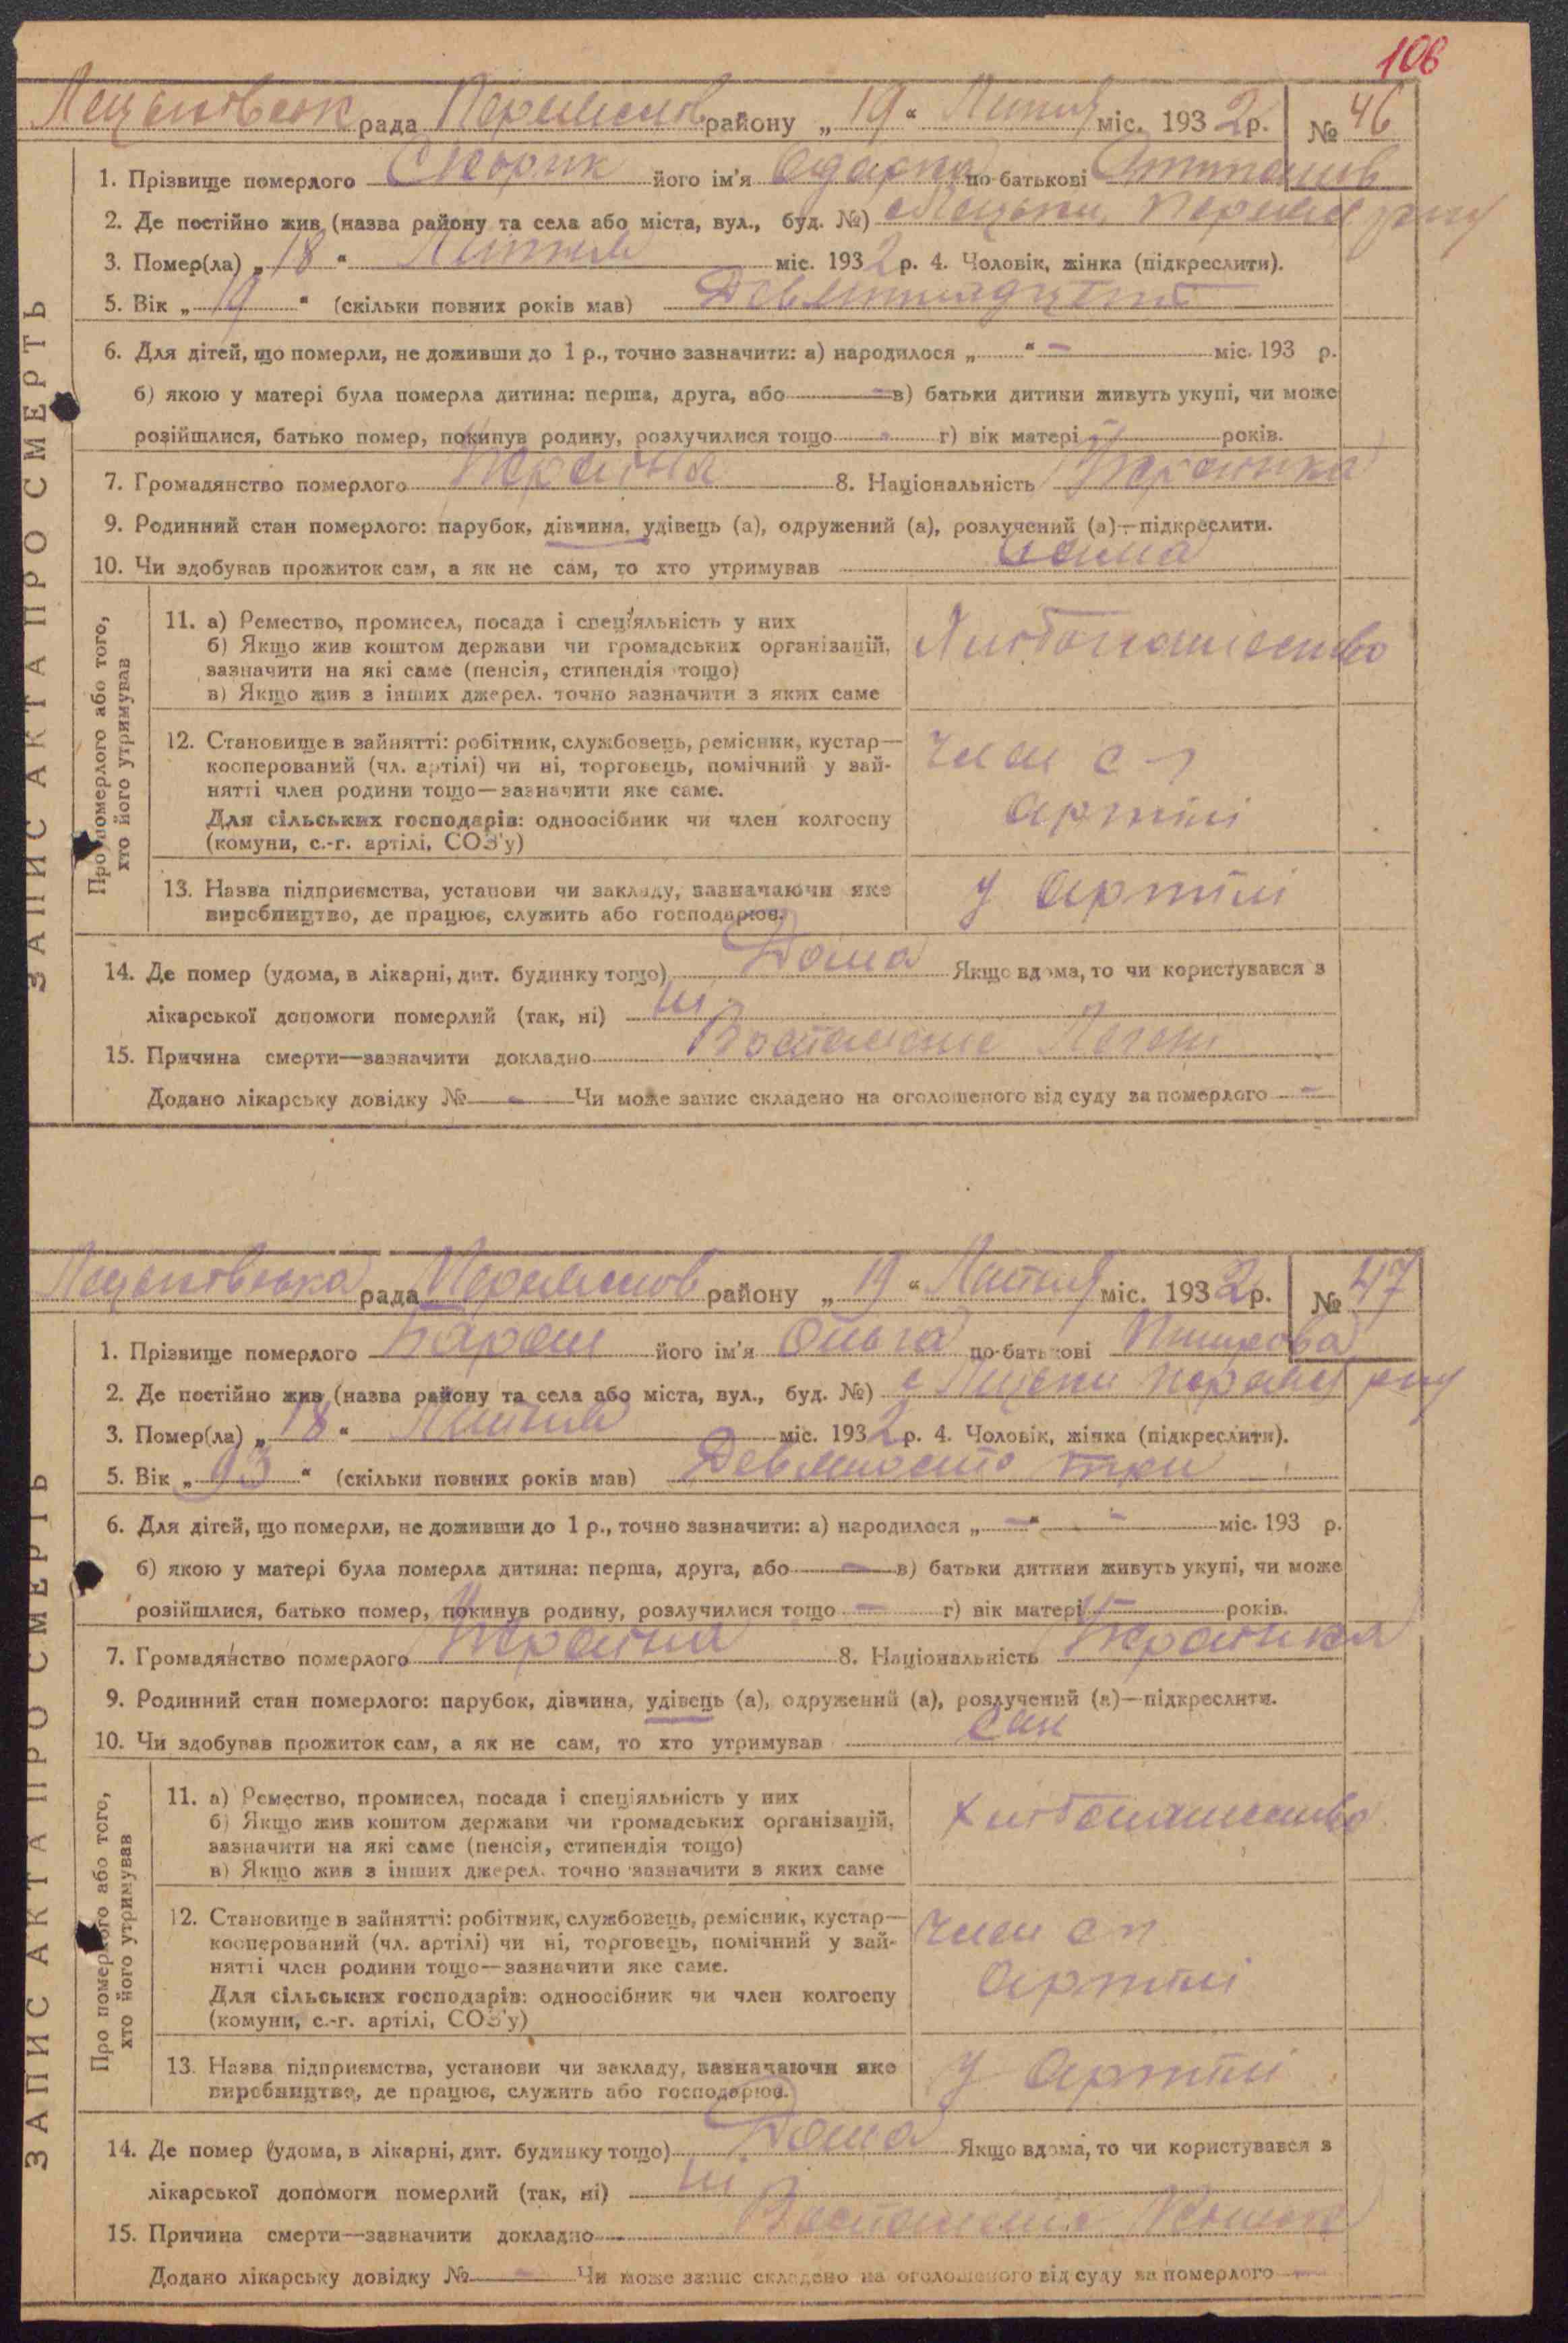 106
рада району „ 19 “ Липня міс. 1932 р. № 46
1. Прізвище померлого Скорик його ім'я Одарка по-батькові
2. Де постійно жив (назва району та села або міста, вул., буд. №)
3. Помер(ла) „ 18 “ Липня міс. 1932 р. 4. Чоловік, жінка (підкреслити).
5. Вік „ 19 “ (скільки повних років мав)
6. Для дітей, що померли, не доживши до 1 р., точно зазначити: а) народилося „ “ – міс. 193 р.
б) якою у матері була померла дитина: перша, друга, або – в) батьки дитини живуть укупі, чи може
розійшлися, батько помер, покинув родину, розлучилися тощо - г) вік матері – років.
7. Громадянство померлого Україна 8. Національність Українка
9. Родинний стан померлого: парубок, дівчина, удівець (а), одружений (а), розлучений (а)—підкреслити.
10. Чи здобував прожиток сам, а як не сам, то хто утримував Сама
ЗАПИС АКТА ПРО СМЕРТЬ
Про померлого або того,
хто його утримував
11. а) Ремество, промисел, посада і спеціяльність у них
б) Якщо жив коштом держави чи громадських організацій,
зазначити на які саме (пенсія, стипендія тощо)
в) Якщо жив з інших джерел. точно зазначити з яких саме
Хлібопашество
12. Становище в зайнятті: робітник, службовець, ремісник, кустар—
кооперований (чл. артілі) чи ні, торговець, помічний у зай-
нятті член родини тощо—зазначити яке саме.
Для сільських господарів: одноосібник чи член колгоспу
(комуни, с.-г. артілі, СОЗ'у)
Член с г
артілі
13. Назва підприємства, установи чи закладу, зазначаючи яке
виробництво, де працює, служить або господарює.
У Артілі
14. Де помер (удома, в лікарні, дит. будинку тощо) Дома Якщо вдома, то чи користувався з
лікарської допомоги померлий (так, ні) ні
15. Причина смерти—зазначити докладно Воспаление
Додано лікарську довідку № – Чи може запис складено на оголошеного від суду за померлого –
рада району „ 19 “ Липня міс. 1932 р. № 47
1. Прізвище померлого його ім'я Ольга по-батькові
2. Де постійно жив (назва району та села або міста, вул., буд. №)
3. Помер(ла) „ 18 “ Липня міс. 1932 р. 4. Чоловік, жінка (підкреслити).
5. Вік „ 93 “ (скільки повних років мав) Девяносто три
6. Для дітей, що померли, не доживши до 1 р., точно зазначити: а) народилося „ – “ – міс. 193 р.
б) якою у матері була померла дитина: перша, друга, або – в) батьки дитини живуть укупі, чи може
розійшлися, батько помер, покинув родину, розлучилися тощо – г) вік матері – років.
7. Громадянство померлого Україна 8. Національність Українка
9. Родинний стан померлого: парубок, дівчина, удівець (а), одружений (а), розлучений (а)—підкреслити.
10. Чи здобував прожиток сам, а як не сам, то хто утримував сам
ЗАПИС АКТА ПРО СМЕРТЬ
Про померлого або того,
хто його утримував
11. а) Ремество, промисел, посада і спеціяльність у них
б) Якщо жив коштом держави чи громадських організацій,
зазначити на які саме (пенсія, стипендія тощо)
в) Якщо жив з інших джерел. точно зазначити з яких саме
Хлібопашество
12. Становище в зайнятті: робітник, службовець, ремісник, кустар—
кооперований (чл. артілі) чи ні, торговець, помічний у зай-
нятті член родини тощо—зазначити яке саме.
Для сільських господарів: одноосібник чи член колгоспу
(комуни, с.-г. артілі, СОЗ'у)
Член с г
Артілі
13. Назва підприємства, установи чи закладу, зазначаючи яке
виробництво, де працює, служить або господарює.
У Артілі
14. Де помер (удома, в лікарні, дит. будинку тощо) Дома Якщо вдома, то чи користувався з
лікарської допомоги померлий (так, ні) ні
15. Причина смерти—зазначити докладно
Додано лікарську довідку № – Чи може запис складено на оголошеного від суду за померлого –